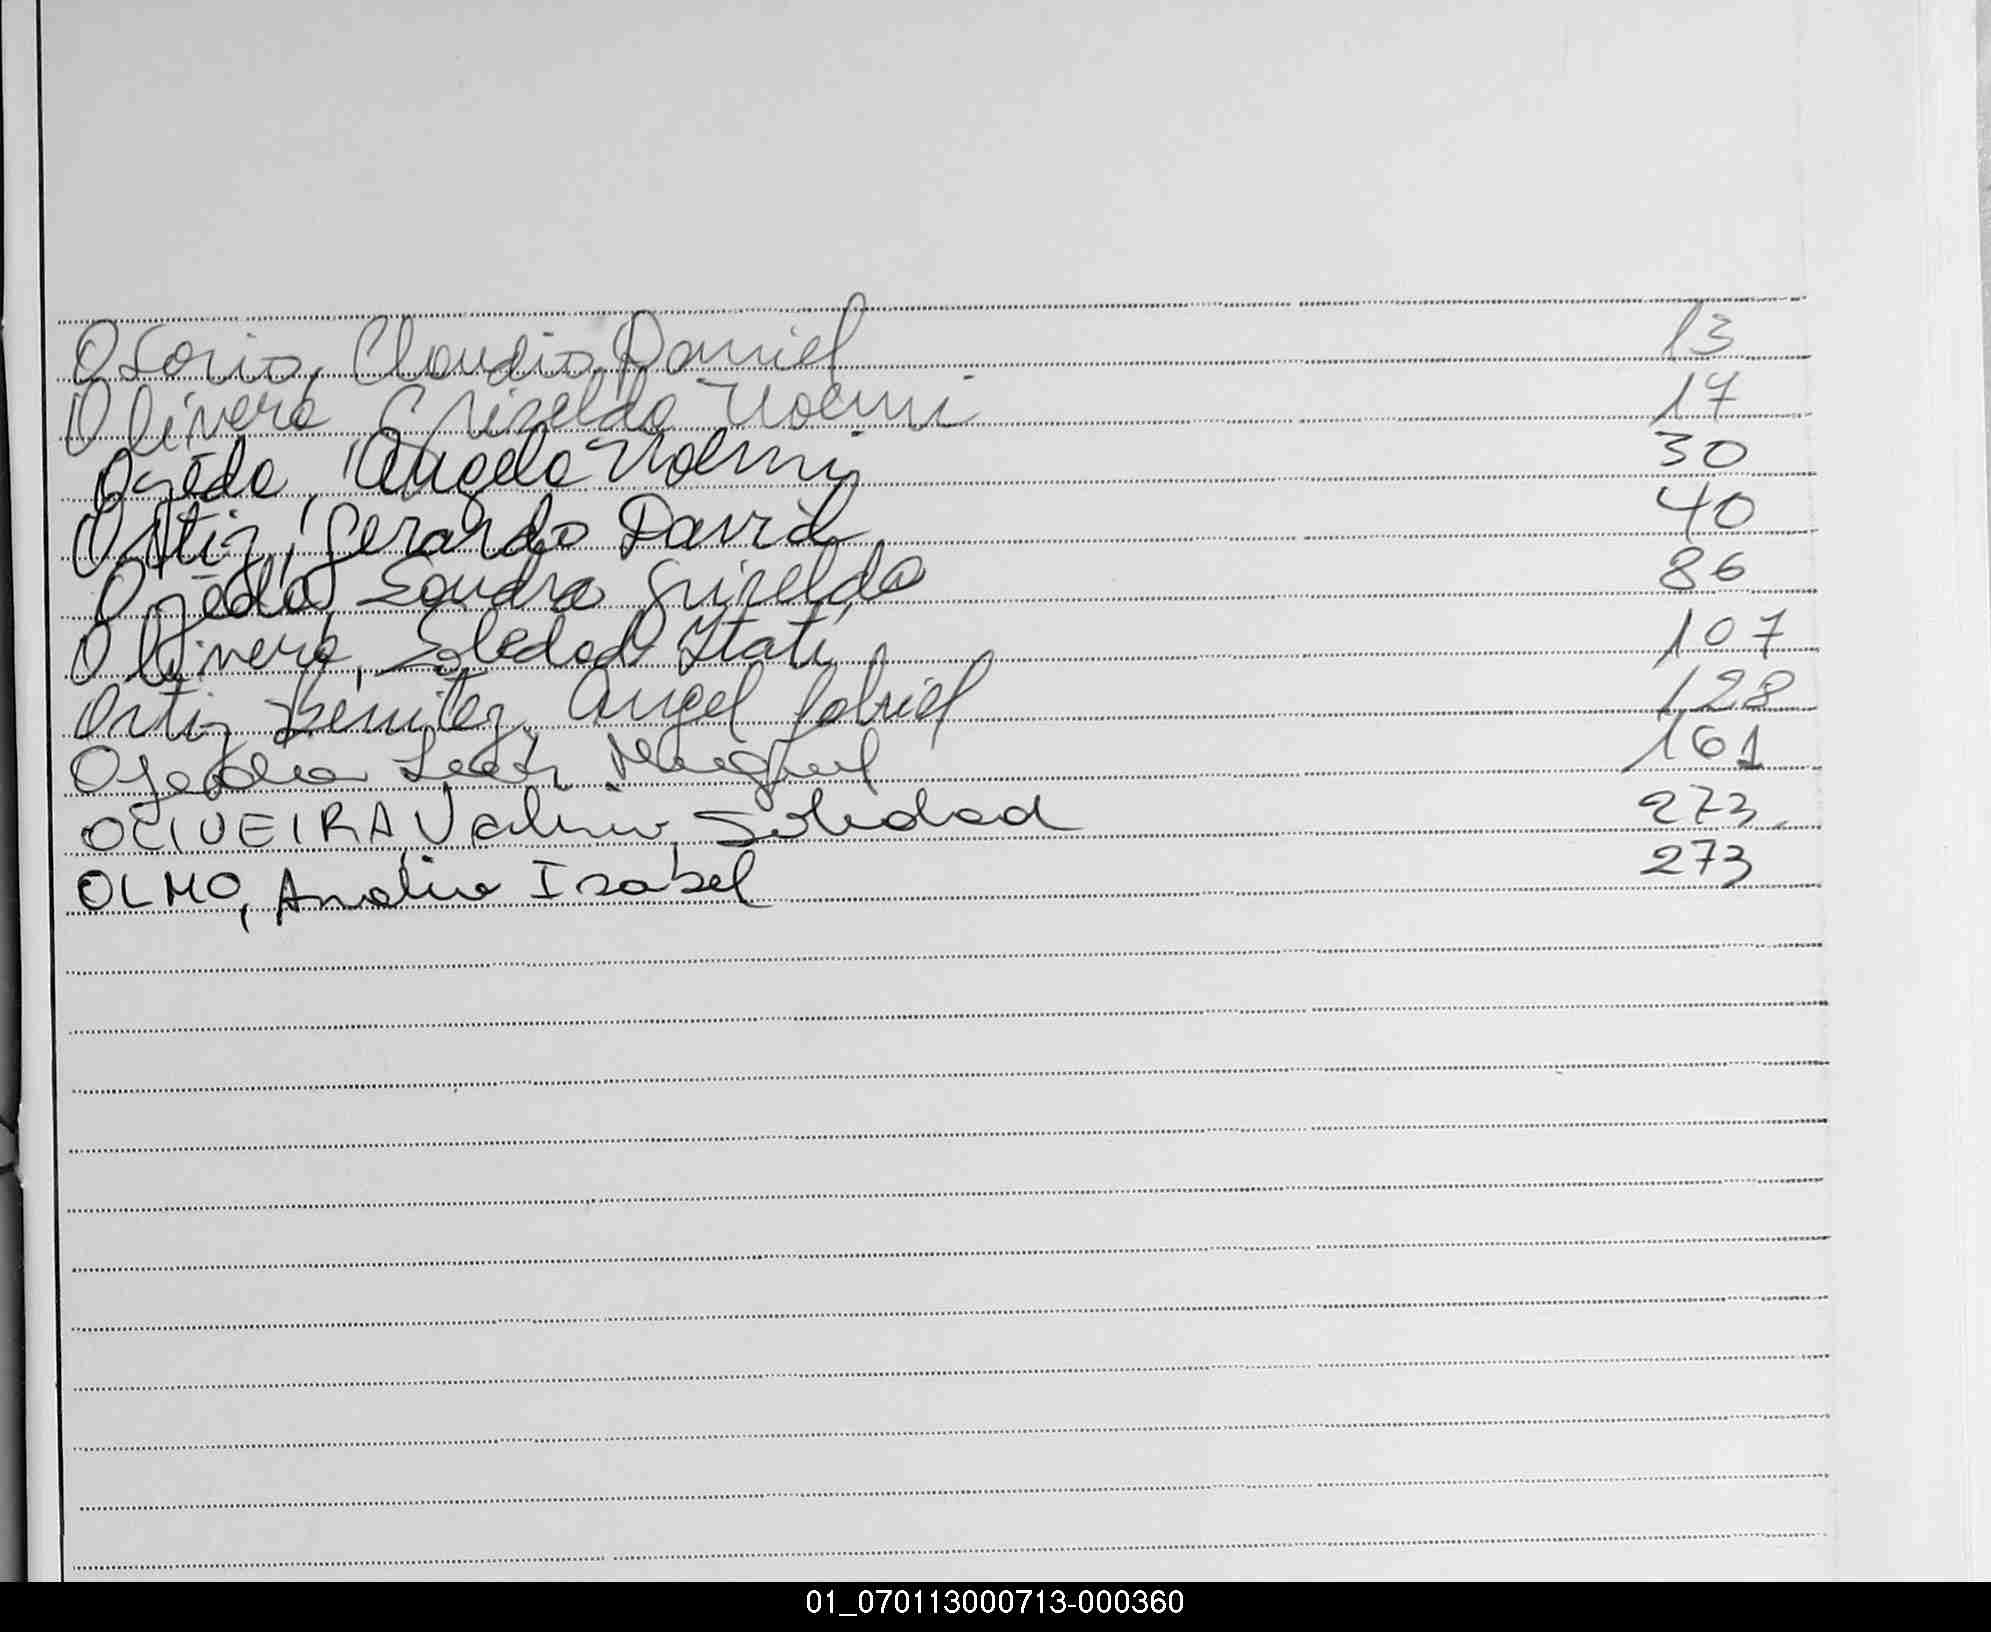 Osorio, Claudio Daniel 13
Olivera Grizelda Noemi 17
Ojeda, Angela Noemi 30
Ortiz, Gerardo David 40
Ojeda, Sandra Grizelda 86
Olivera, Soledad Itati 107
Ortiz Benitez Angel Gabriel 128
Ojeda Miguel 161
OLIVEIRA Soledad 273
OLMO, Analia Isabel 273
01_070113000713-000360